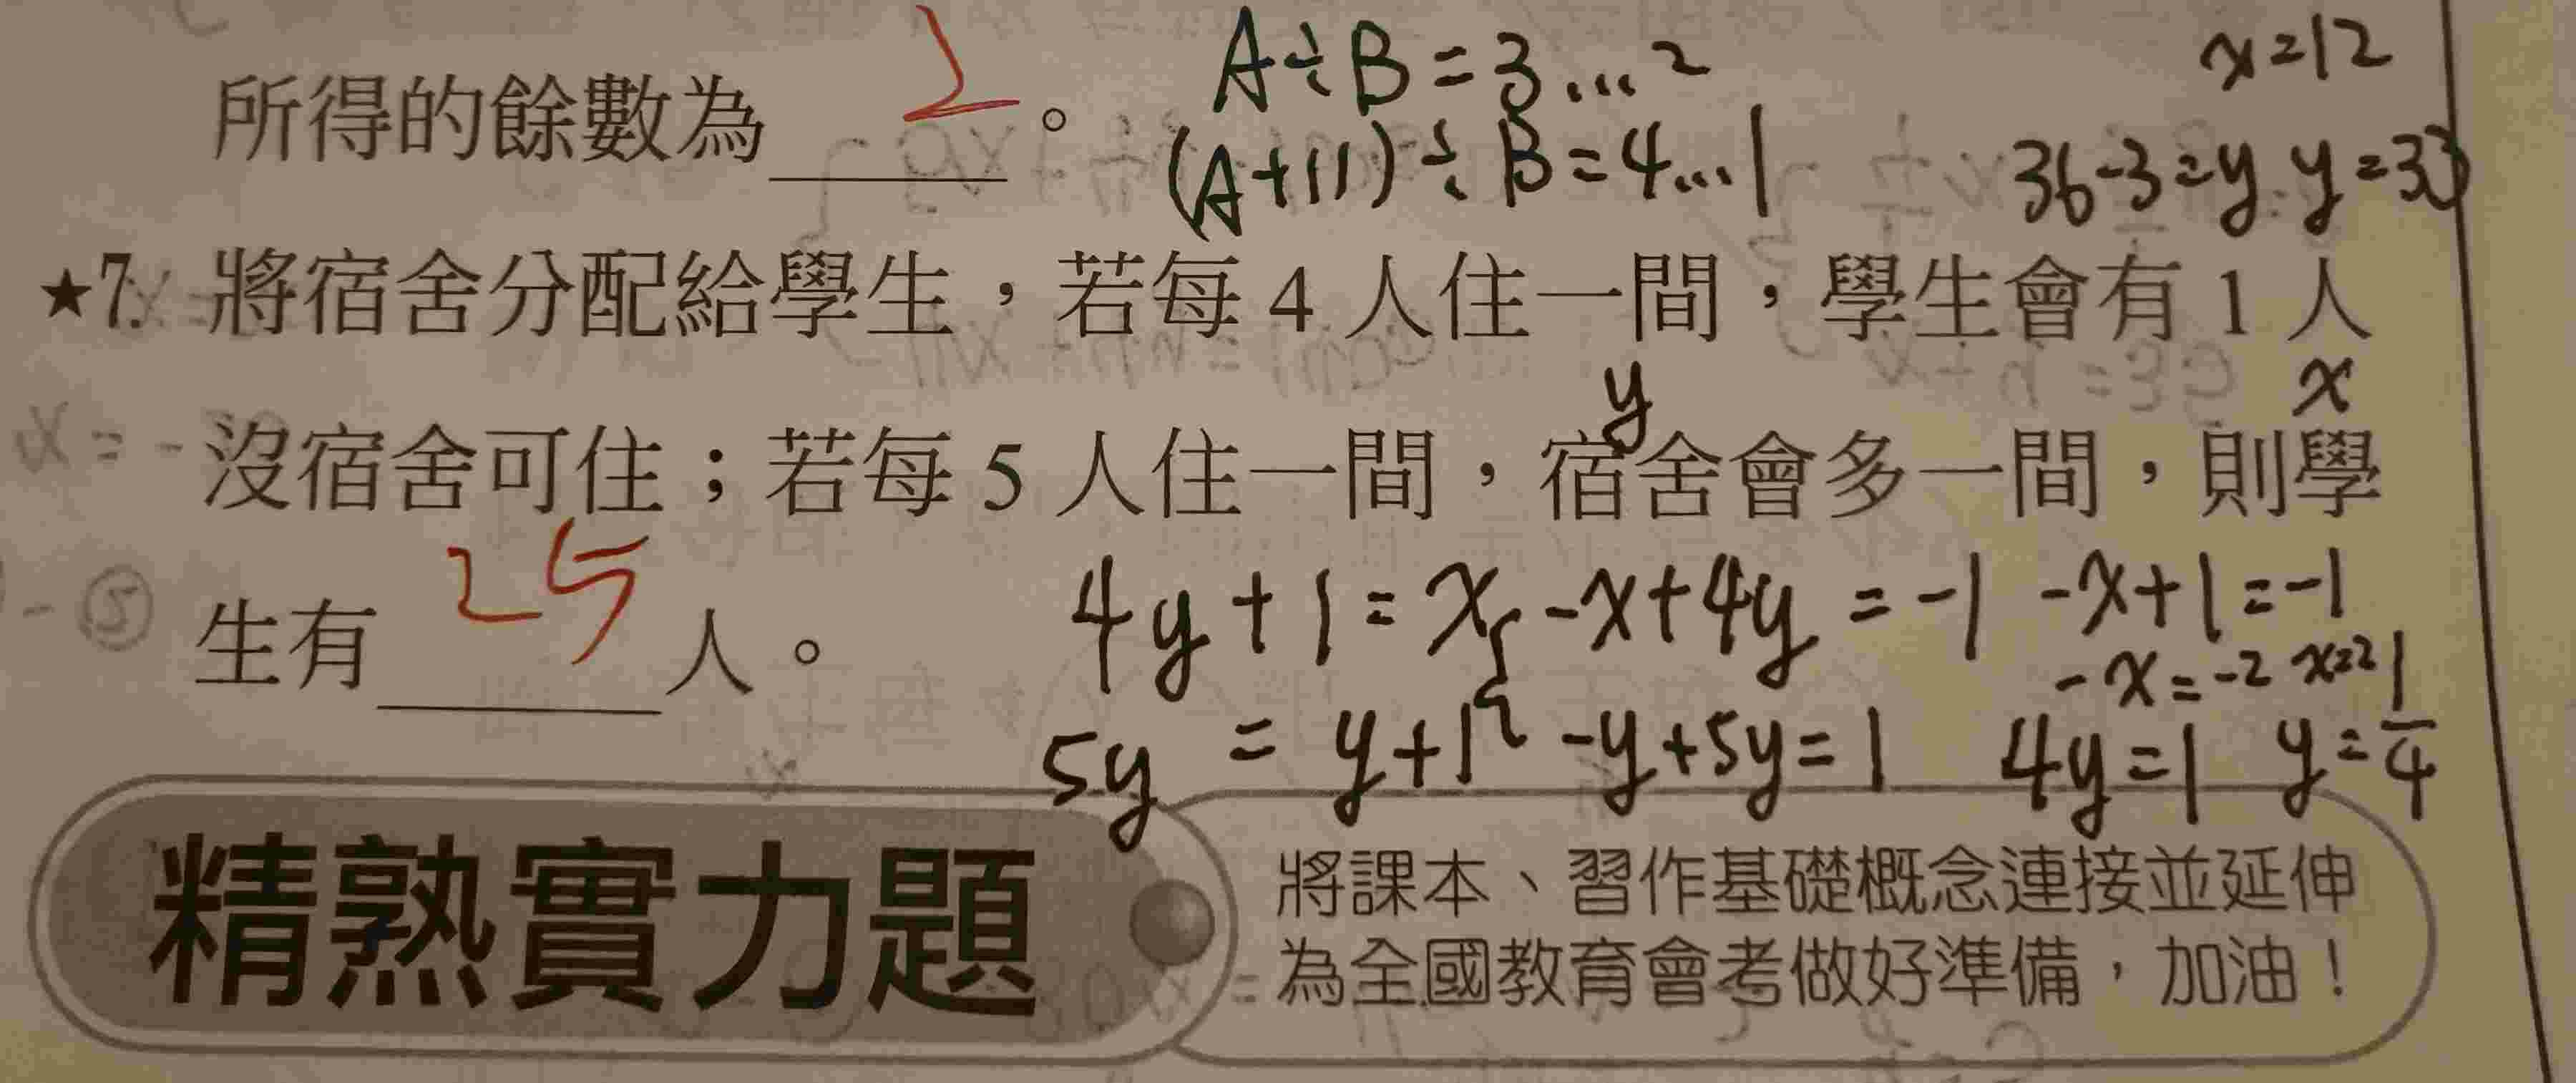 所得的餘數為 2 。 A÷B=3...2 x=12
(A+11)÷B=4...1 36-3=y y=33
★7. 將宿舍分配給學生，若每 4 人住一間，學生會有 1 人
y x
沒宿舍可住；若每 5 人住一間，宿舍會多一間，則學
生有 25 人。 4y+1=x -x+4y=-1 -x+1=-1
-x=-2 x=2
5y = y+1 -y+5y=1 4y=1 y=1/4
精熟實力題
將課本、習作基礎概念連接並延伸
為全國教育會考做好準備，加油！